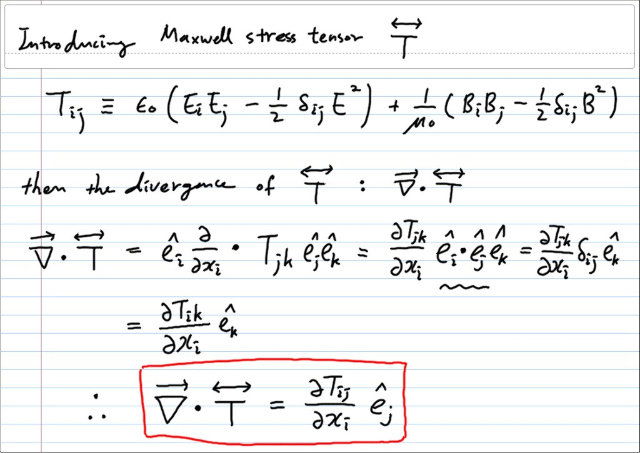 Introducing Maxwell stress tensor T⃡
T_ij ≡ ε₀ (E_i E_j − 1/2 δ_ij E²) + 1/μ₀ (B_i B_j − 1/2 δ_ij B²)
then the divergence of T⃡ : ∇⃗ · T⃡
∇⃗ · T⃡ = ê_i ∂/∂x_i · T_jk ê_j ê_k = ∂T_jk/∂x_i ê_i · ê_j ê_k = ∂T_jk/∂x_i δ_ij ê_k
= ∂T_ik/∂x_i ê_k
∴ ∇⃗ · T⃡ = ∂T_ij/∂x_i ê_j